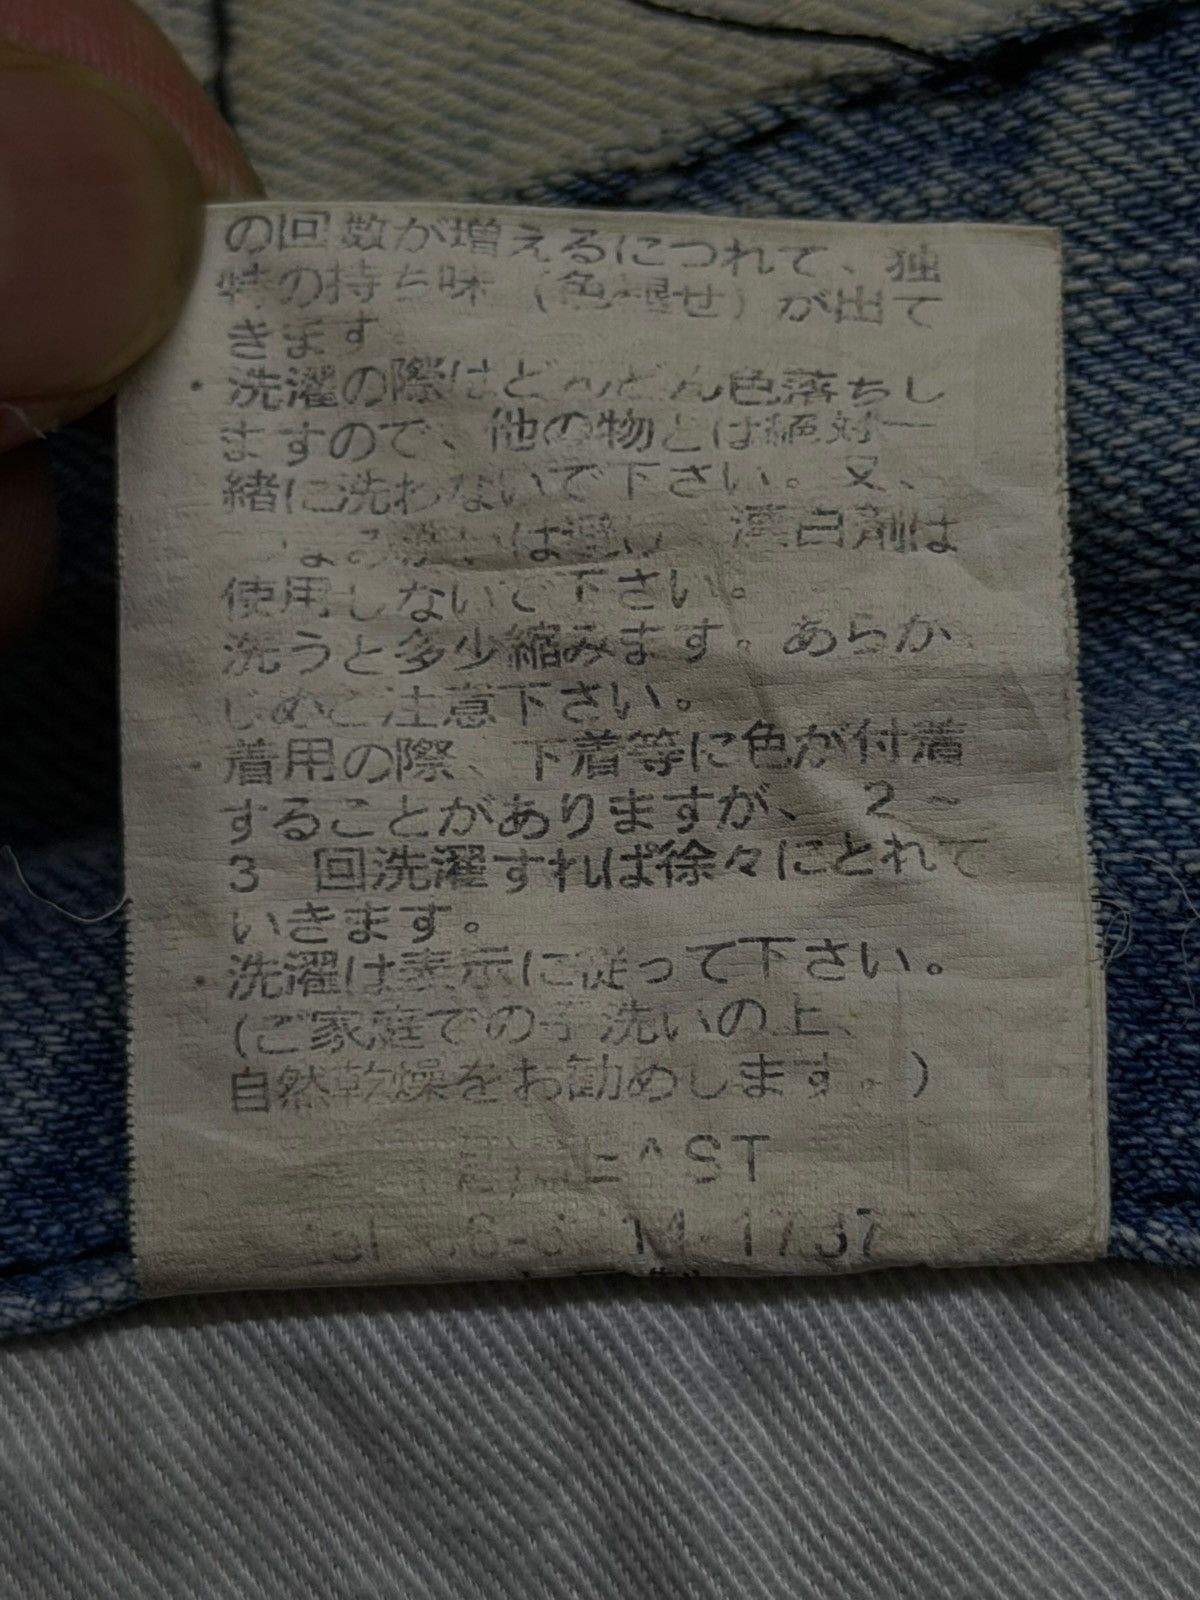 の回数が増えるにつれて、独
特の持ち味（色褪せ）が出て
きます
・洗濯の際はどんどん色落ちし
ますので、他の物とは絶対一
緒に洗わないで下さい。又、
洗いは避け、漂白剤は
使用しないで下さい。
洗うと多少縮みます。あらか
じめご注意下さい。
・着用の際、下着等に色が付着
することがありますが、2～
3 回洗濯すれば徐々にとれて
いきます。
・洗濯は表示に従って下さい。
(ご家庭での手洗いの上、
自然乾燥をお勧めします。)